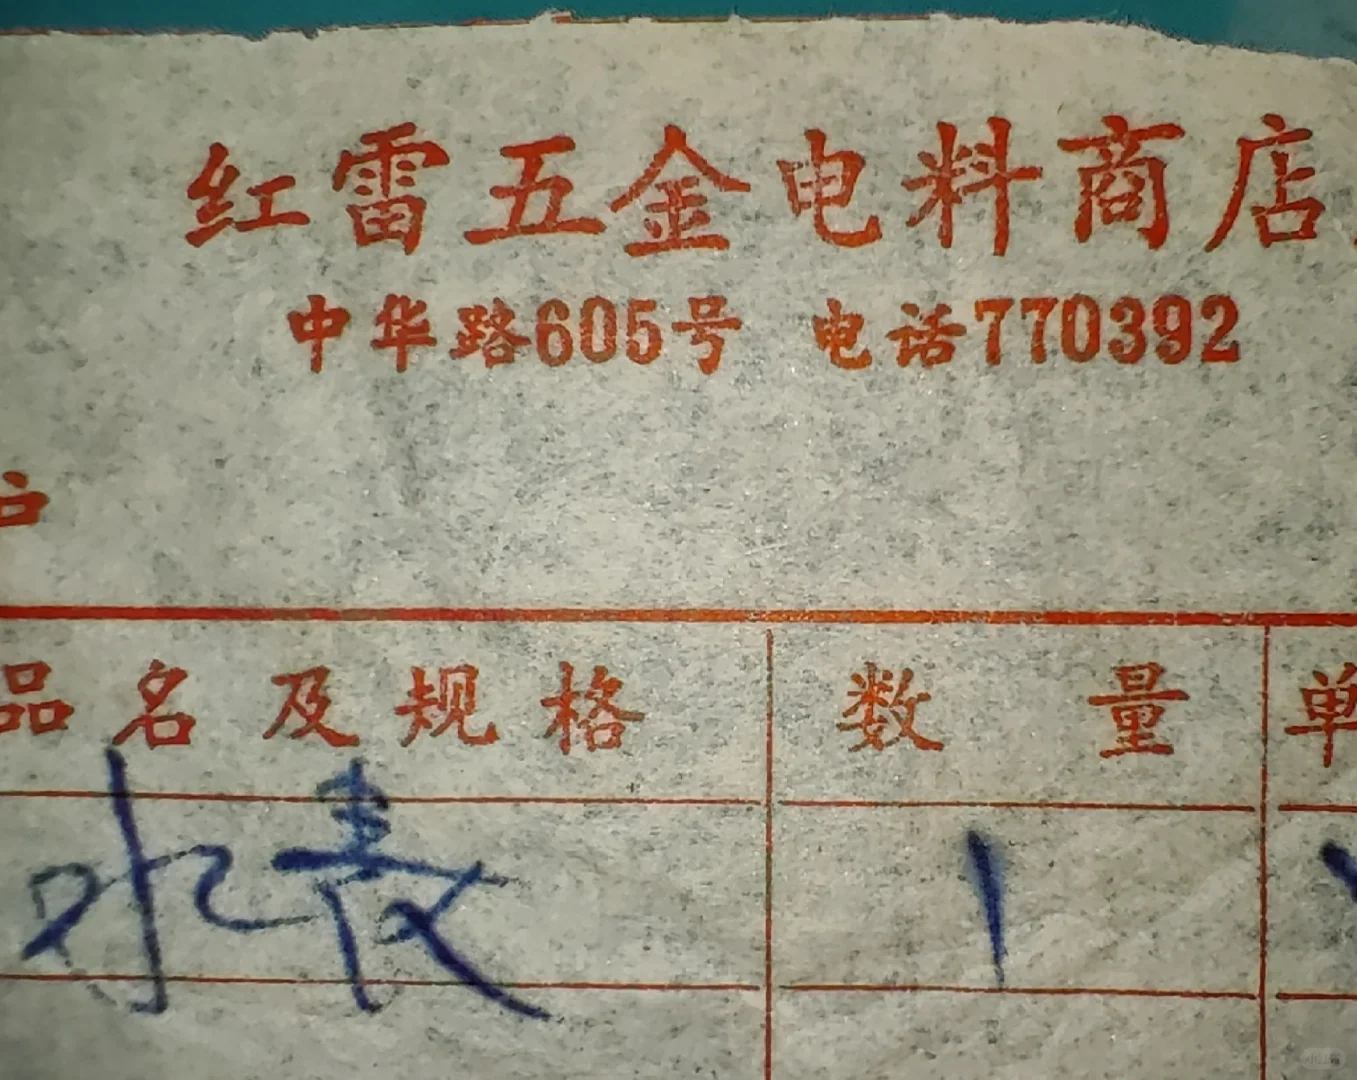 红雷五金电料商店
中华路605号 电话770392
户
品名及规格 数量 单
水表 1